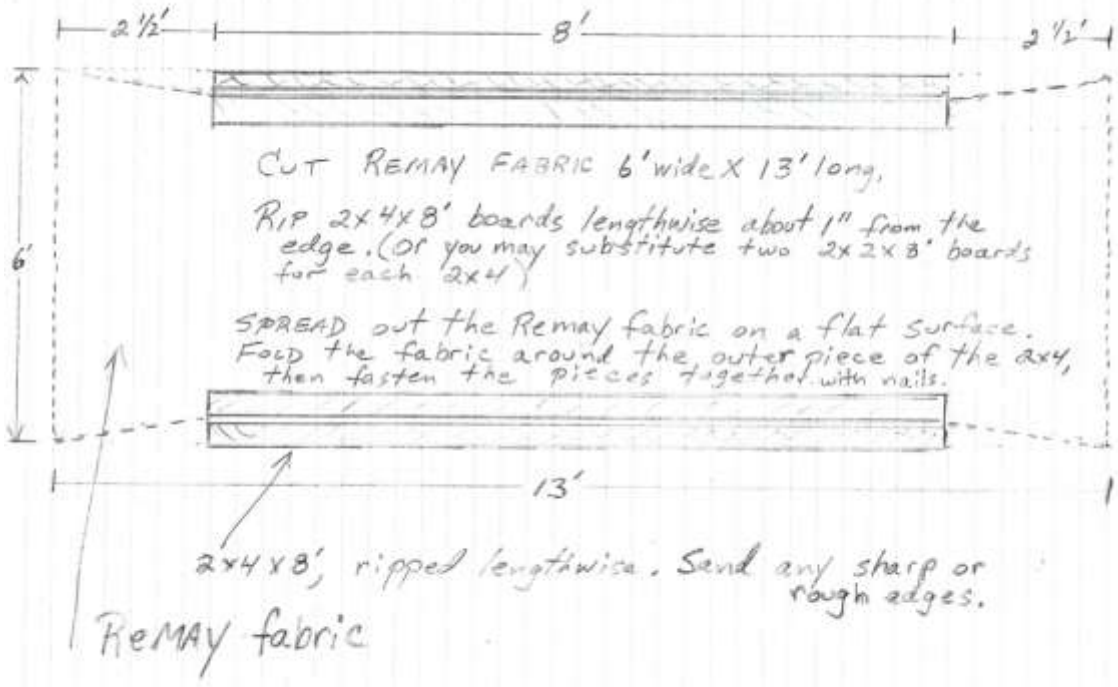 2 1/2' 8' 2 1/2'
CUT REMAY FABRIC 6' wide X 13' long,
RIP 2x4x8' boards lengthwise about 1" from the
edge. (Or you may substitute two 2x2x8' boards
for each 2x4)
6'
SPREAD out the Remay fabric on a flat surface.
FOLD the fabric around the outer piece of the 2x4,
then fasten the pieces together with nails.
13'
2x4x8', ripped lengthwise. Sand any sharp or
rough edges.
ReMAY fabric